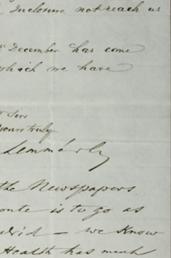 Inclosure not reach us
December has come
which we have
Sir
yours truly
the Newspapers
is to go as
we Know
Health has much